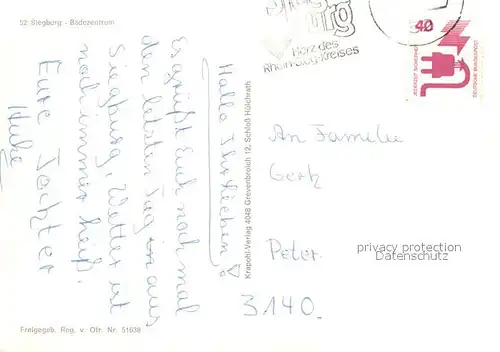 52 Siegburg - Badezentrum
Hallo Ihr Lieben!
Es grüßt Euch nochmal
den letzten Tag in aus
Siegburg, Wetter ist
noch immer heiß.
Eure Tochter
Heike
Krapohl-Verlag 4048 Grevenbroich 12, Schloß Hülchrath
Freigegeb. Reg. v. Ofr. Nr. 51638
burg
Herz des
Rhein-Sieg-Kreises
40
JEDERZEIT SICHERHEIT
DEUTSCHE BUNDESPOST
An Familie
Peter
3140.
privacy protection
Datenschutz